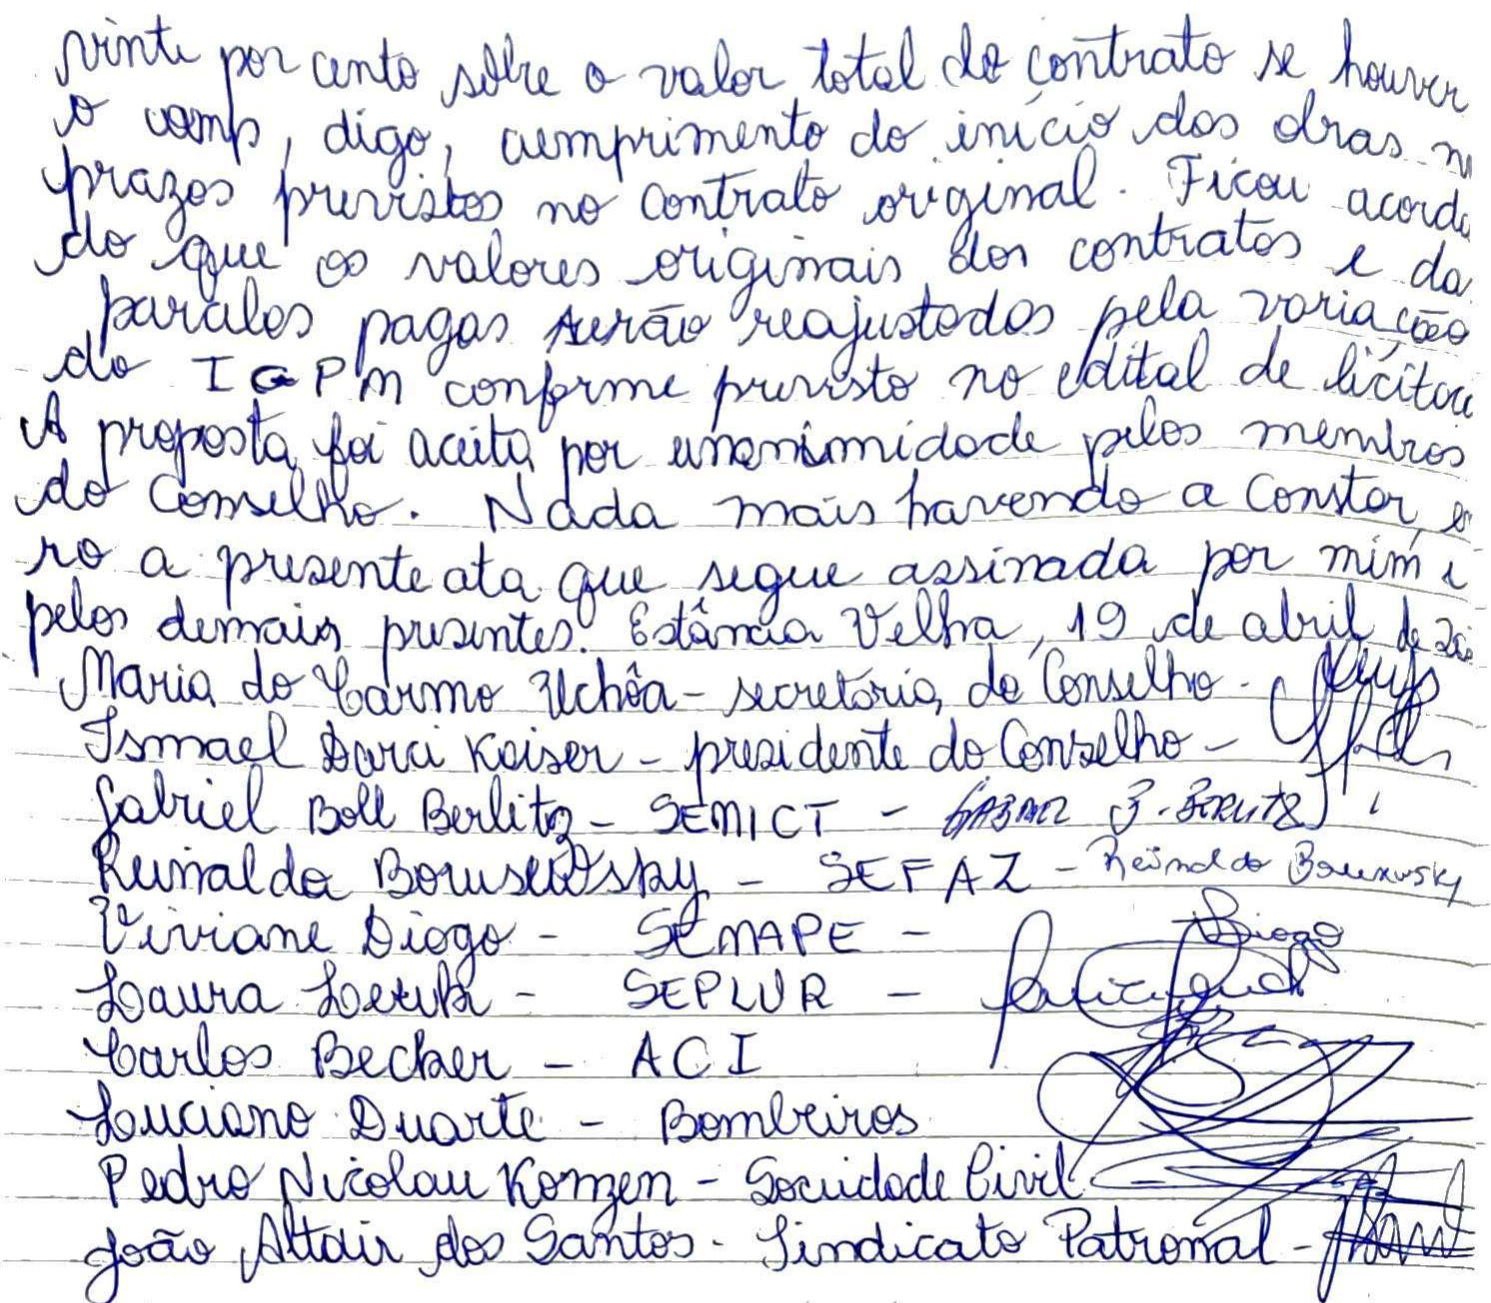 vinte por cento sobre o valor total do contrato se houver
o comp, digo, cumprimento do início das obras n
prazos previstos no contrato original. Ficou acorda
do que os valores originais dos contratos e da
parcelas pagas serão reajustados pela variação
do IGPM conforme previsto no edital de licitaç
A proposta foi aceita por unanimidade pelos membros
do Conselho. Nada mais havendo a constar, e
ro a presente ata que segue assinada por mim e
pelos demais presentes. Estância Velha, 19 de abril de
Maria do Carmo Uchôa - secretária do Conselho -
Ismael Darci Kaiser - presidente do Conselho -
Gabriel Boll Berlitz - SEMICT - GABRIEL B. BERLITZ
Reinaldo Borusewsky - SEFAZ - Reinaldo
Viviane Diogo - SEMAPE - Diogo
Laura - SEPLUR -
Carlos Becker - ACI
Luciano Duarte - Bombeiros
Pedro Nicolau Konzen - Sociedade Civil
João Altair dos Santos - Sindicato Patronal -